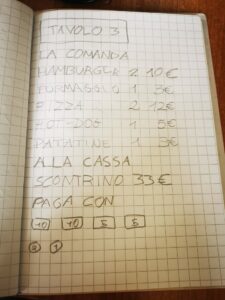 TAVOLO 3
LA COMANDA
HAMBURGER 2 10€
FORMAGGIO 1 3€
PIZZA 2 12€
HOT-DOG 1 5€
PATATINE 1 3€
ALLA CASSA
SCONTRINO 33€
PAGA CON
10 10 5 5
2 1